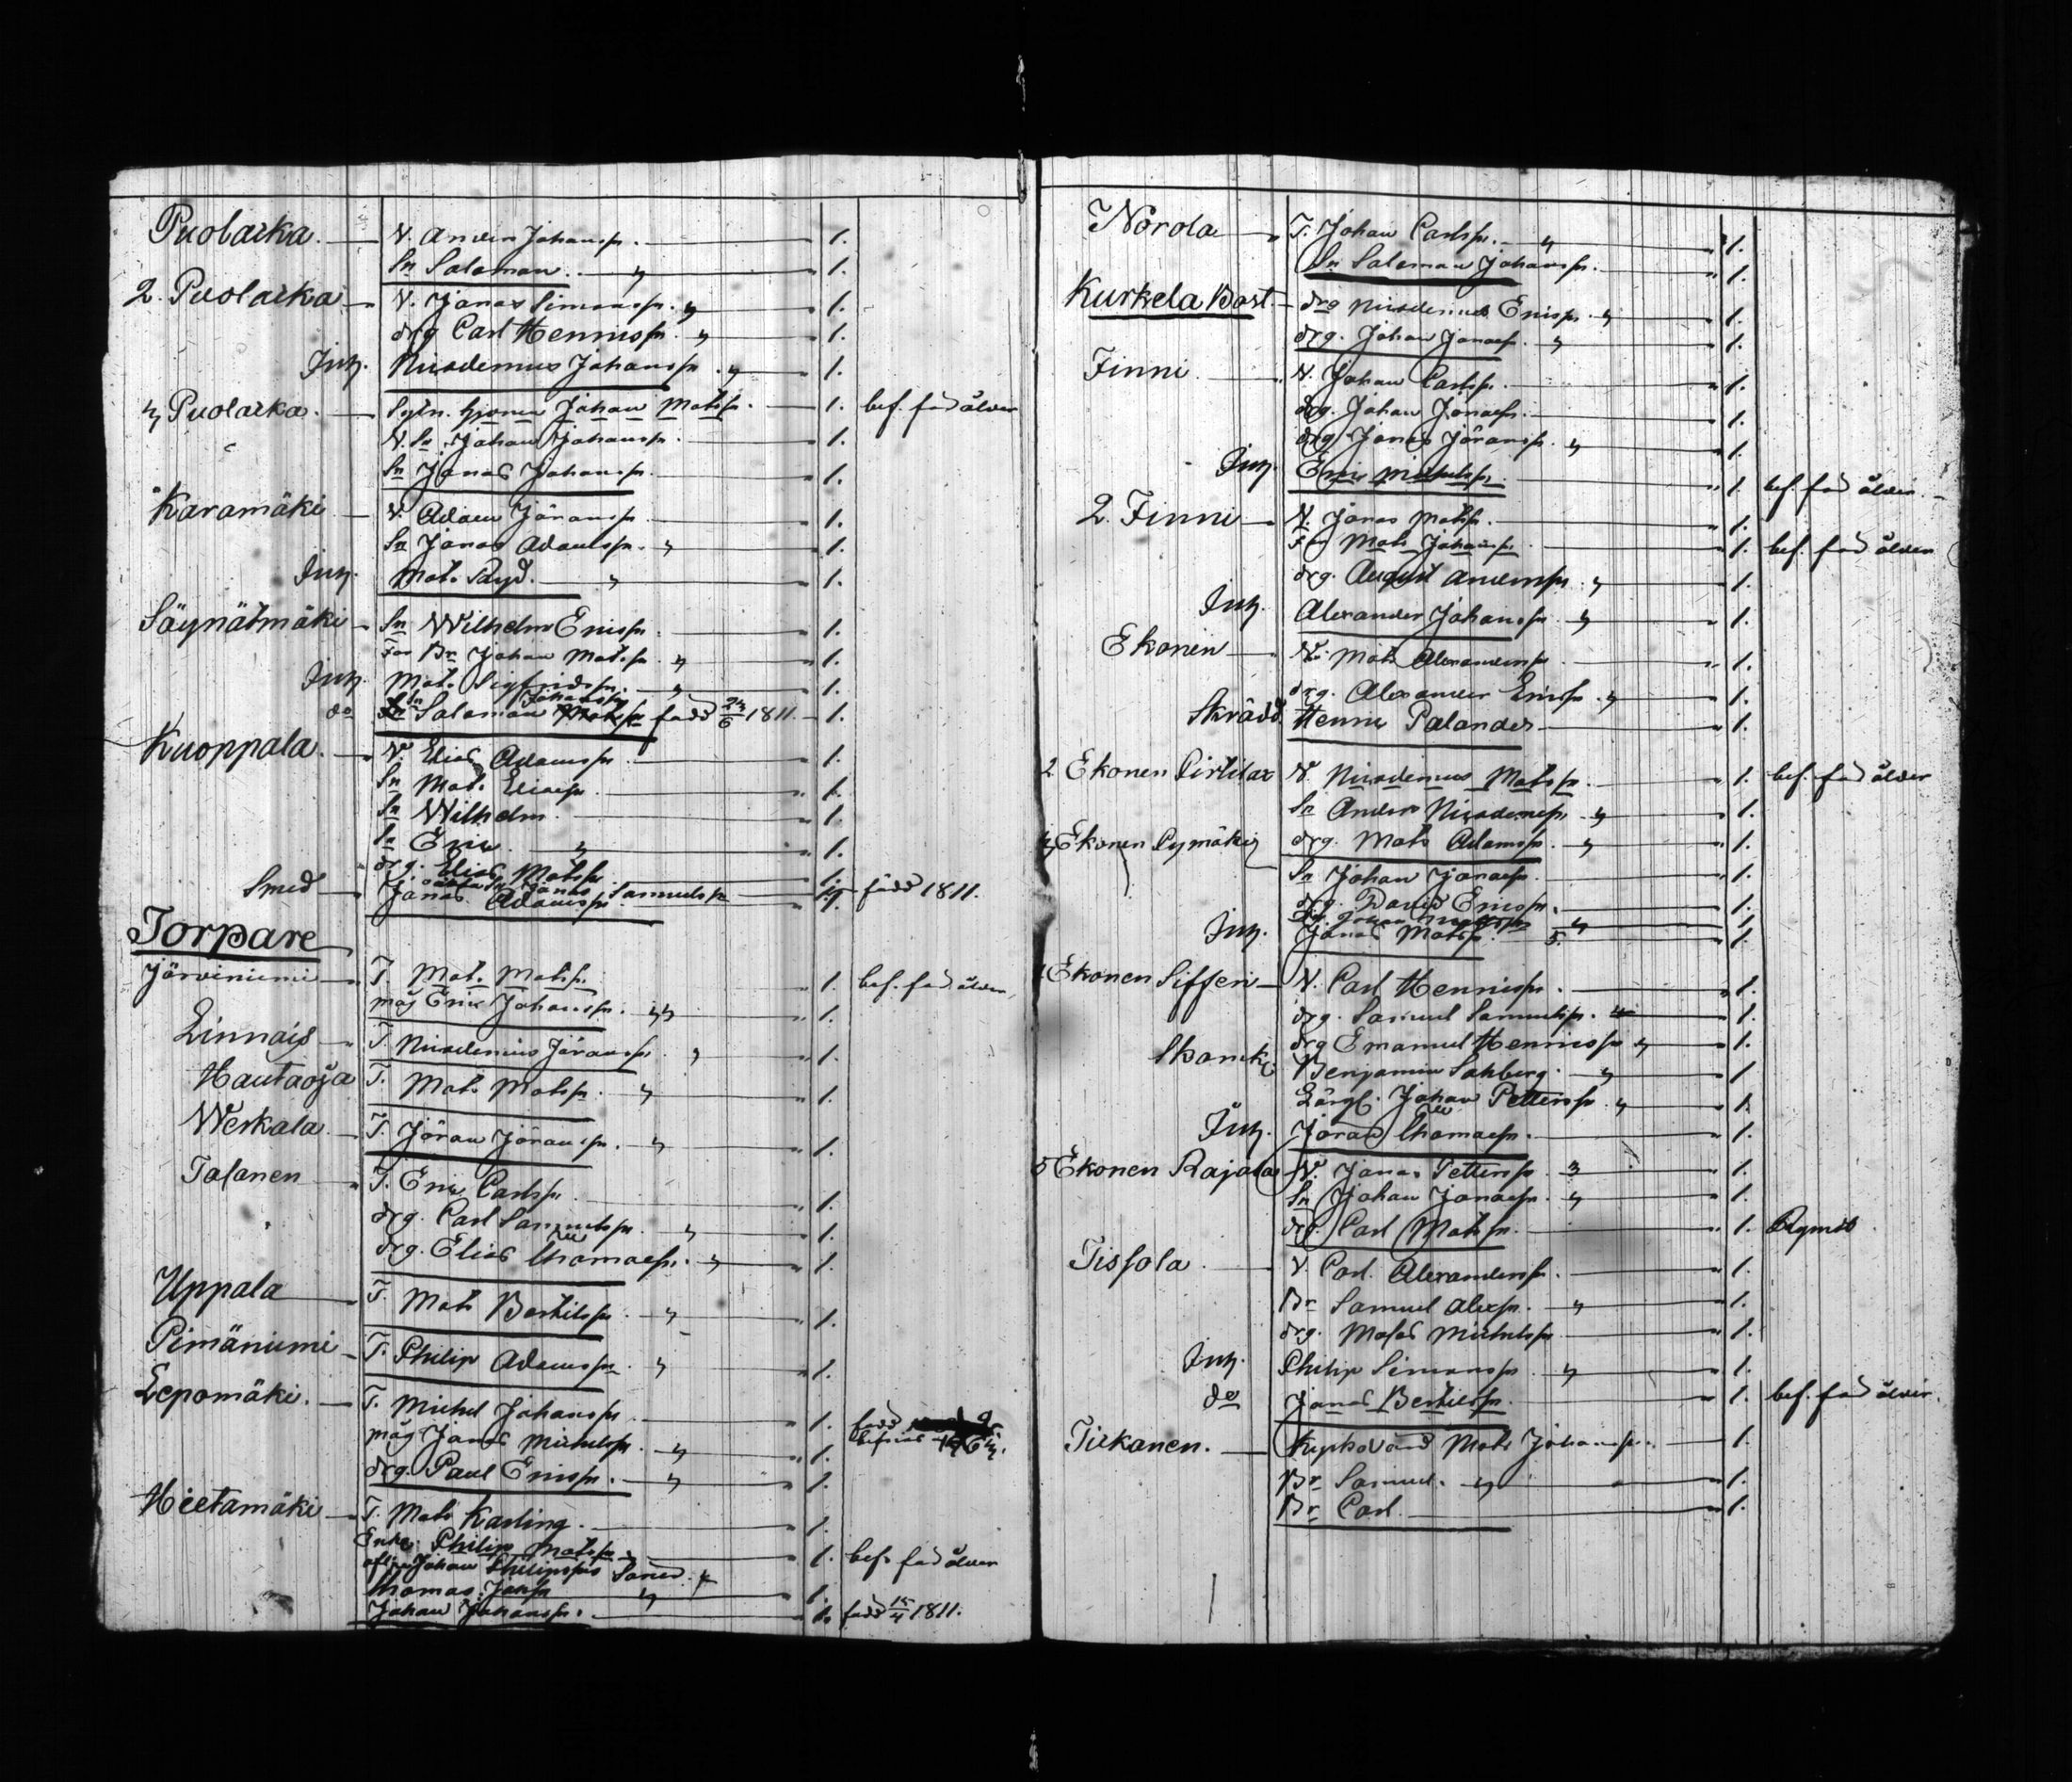 Puolakka. N. Anders Johansn. 1.
Sn Saloman. " 1.
2. Puolakka N. Jonas Simonsn. " 1.
drg Carl Hennicsn. " 1.
Inh. Nicodemus Johansn. " 1.
Puolakka. Johan Matsn. 1. bef. för ålder
N. Sn Johan Johansn. 1.
Sn Jonas Johansn. 1.
Karamäki N. Adam Göransn. 1.
Sn Jonas Adamsn. " 1.
Inh. Mats " 1.
Säynätmäki Sn Wilhelm Ericsn. 1.
Br Johan Matsn. " 1.
Inh. Mats Sigfridsn. " 1.
do Saloman Johansn född 24/6 1811. 1.
Kuoppala. N. Elias Adamsn. 1.
Sn Mats Eliaesn. 1.
Sn Wilhelm. 1.
Sn Eric. " 1.
drg. Elias Matsn. 1.
Jonas Samuelsn född 1811.
Smed Jonas Adamsn 1.
Torpare
Järviniemi T. Mats Matsn. 1. bef. för ålder
måg Eric Johansn. " 1.
Linnais T. Nicodemus Göransn. " 1.
Hautaoja T. Mats Matsn. " 1.
Werkala. T. Jöran Jöransn. " 1.
Talanen T. Eric Carlsn. 1.
drg. Carl Samuelsn. " 1.
drg. Elias Thomaesn. " 1.
Uppala T. Mats Bertilsn. " 1.
Pimäniemi T. Philip Adamsn. " 1.
Lepomäki. T. Michel Johansn. 1.
måg Jonas Michelsn. " 1.
drg. Paul Ericsn. " 1.
Hietamäki T. Mats Karling. 1.
Philip Matsn. 1. bef. för ålder
Johan Philipsns
Thomas " 1.
Johan Johansn. 1. född 15/4 1811.
Norola T. Johan Carlsn. " 1.
Sn Saloman Johansn. 1.
Kurkela Bost. drg Nicodemus Ericsn. " 1.
drg. Johan Jonaesn. " 1.
Finni N. Johan Carlsn. 1.
drg. Johan Jonaesn. 1.
drg. Jonas Jöransn. " 1.
Inh. Eric Michelsn. 1. bef. för ålder.
2. Finni N. Jonas Matsn. 1.
Far Mats Johansn 1. bef. för ålder
drg. August Andersn. " 1.
Inh. Alexander Johansn. " 1.
Ekonen N. Mats Alexandersn. 1.
drg. Alexander Ericsn. " 1.
Skrädd. Henric Palander 1.
2 Ekonen Pirtilax N. Nicodemus Matsn. 1. bef. för ålder
Sn Anders Nicodemsn. " 1.
Ekonen Pymäki drg. Mats Adamsn. " 1.
Sn Johan Jonaesn. 1.
drg. David Ericsn. 1.
Inh. Jonas Matsn. 1.
Ekonen Siffen N. Carl Hennicsn. 1.
drg. Samuel Samuelsn. 1.
drg Emanuel Hennicsn " 1.
Benjamin Sahberg. " 1.
Johan Pettersn. " 1.
Inh. Jöran Thomaesn. 1.
5 Ekonen Rajala N. Jonas Pettersn. 1.
Sn Johan Jonaesn. " 1.
drg. Carl Matsn. 1. Rymd.
Tissola N. Carl Alexandersn. 1.
Br Samuel Alexsn. " 1.
drg. Mats Michelsn 1.
Inh. Philip Simonsn. " 1.
do Jonas Bertilsn. 1. bef. för ålder.
Tirkanen. Kyrkovärd Mats Johansn. 1.
Br Samuel. " 1.
Br Carl. 1.